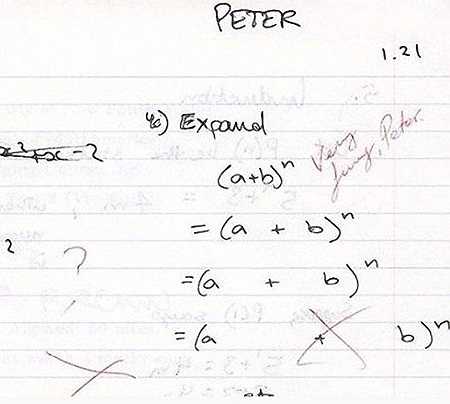 PETER
1.21
4c) Expand
x² + x - 2
(a+b)ⁿ
Very
funny, Peter.
= (a + b)ⁿ
2
?
= (a + b)ⁿ
= (a + b)ⁿ